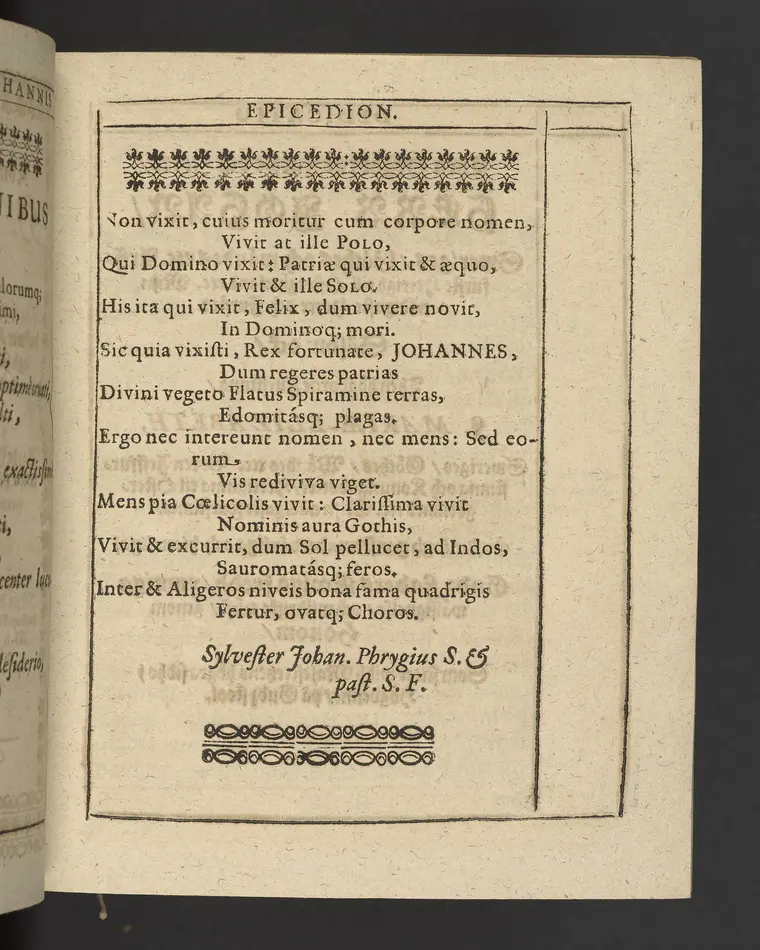 HANNIS
IIBUS
lorumq;
imi,
i,
lti,
exactissim
ti,
center luce
desiderio,
EPICEDION.
Non vixit, cuius moritur cum corpore nomen,
Vivit at ille POLO,
Qui Domino vixit: Patriæ qui vixit & æquo,
Vivit & ille SOLO.
His ita qui vixit, Felix, dum vivere novit,
In Dominoq; mori.
Sic quia vixisti, Rex fortunate, JOHANNES,
Dum regeres patrias
Divini vegeto Flatus Spiramine terras,
Edomitásq; plagas.
Ergo nec intereunt nomen, nec mens: Sed eo-
rum
Vis rediviva viget.
Mens pia Cœlicolis vivit: Clarissima vivit
Nominis aura Gothis,
Vivit & excurrit, dum Sol pellucet, ad Indos,
Sauromatásq; feros.
Inter & Aligeros niveis bona fama quadrigis
Fertur, ovatq; Choros.
Sylvester Johan. Phrygius S. &
past. S. F.